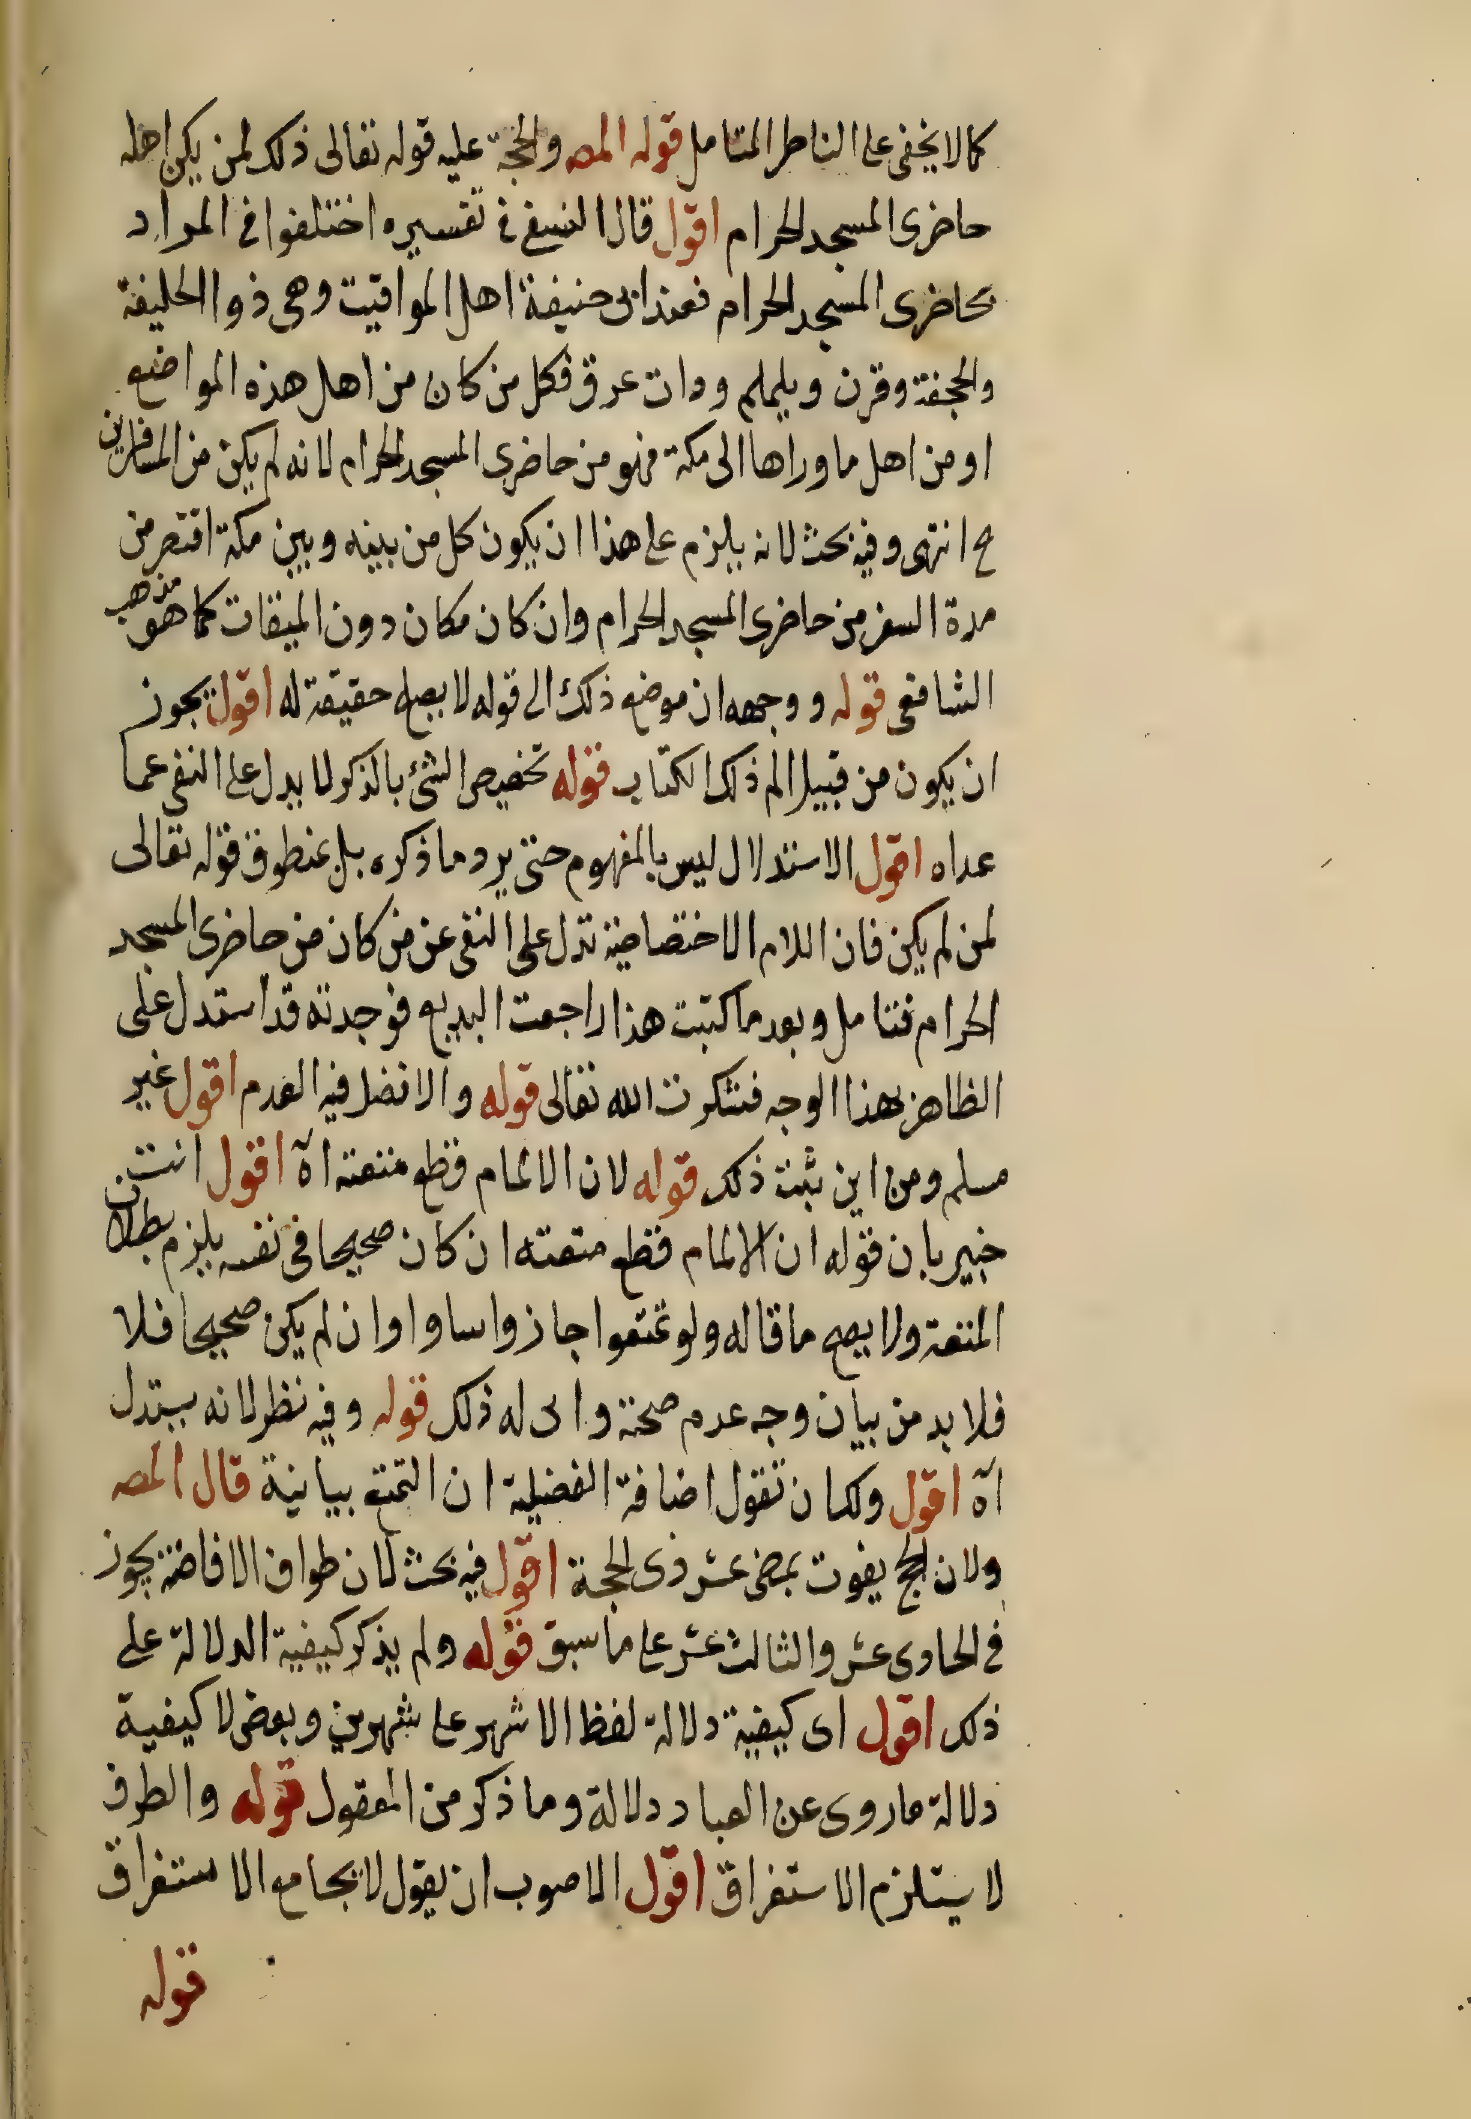 كما لا يخفى على الناظر المتامل قوله المصـ والحجة عليه قوله تعالى ذلك لمن يكن اهله
حاضرى المسجد الحرام اقول قال النسفى فى تفسيره اختلفوا فى المراد
بحاضرى المسجد الحرام فعند ابى حنيفة اهل المواقيت وهى ذو الحليفة
والجحفة وقرن ويلملم وذات عرق فكل من كان من اهل هذه المواضع
او من اهل ما وراها الى مكة فهو من حاضرى المسجد الحرام لانه لم يكن من المسافرين
ح انتهى وفيه بحث لانه يلزم على هذا ان يكون كل من بينه وبين مكة اقصر من
مدة السفر من حاضرى المسجد الحرام وان كان مكان دون الميقات كما هو مذهب
الشافعى قوله ووجهه ان موضع ذلك الى قوله لا يصلح حقيقة له اقول يجوز
ان يكون من قبيل الم ذلك الكتاب قوله تخصيص الشئ بالذكر لا يدل على النفى عما
عداه اقول الاستدلال ليس بالمفهوم حتى يرد ما ذكره بل بمنطوق قوله تعالى
لمن لم يكن فان اللام الاختصاصية تدل على النفى عن من كان من حاضرى المسجد
الحرام فتامل وبعد ما كتبت هذا راجعت البديع فوجدته قد استدل على
الظاهر بهذا الوجه فشكرت الله تعالى قوله والافضل فيه العدم اقول غير
مسلم ومن اين يثبت ذلك قوله لان الالمام قطع متعته اه اقول انت
خبير بان قوله ان الالمام قطع متعته ان كان صحيحا فى نفسه يلزم بطلان
المتعة ولا يصح ما قاله ولو تمتعوا جاز واساوا وان لم يكن صحيحا فلا
فلا بد من بيان وجه عدم صحته وانى له ذلك قوله وفيه نظر لانه يستدل
اه اقول ولك ان تقول اضافة الفضيلة ان التمتع بيانية قال المصـ
ولان الحج يفوت بمضى عشر ذى الحجة اقول فيه بحث لان طواف الافاضة يجوز
فى الحادى عشر والثالث عشر على ما سبق قوله ولم يذكر كيفية الدلالة على
ذلك اقول اى كيفية دلالة لفظ الاشهر على شهرين وبعض لا كيفية
دلالة ما روى عن العباد دلالة وما ذكر من المعقول قوله والطرف
لا يستلزم الاستغراق اقول الاصوب ان يقول لا يجامع الاستغراق
قوله